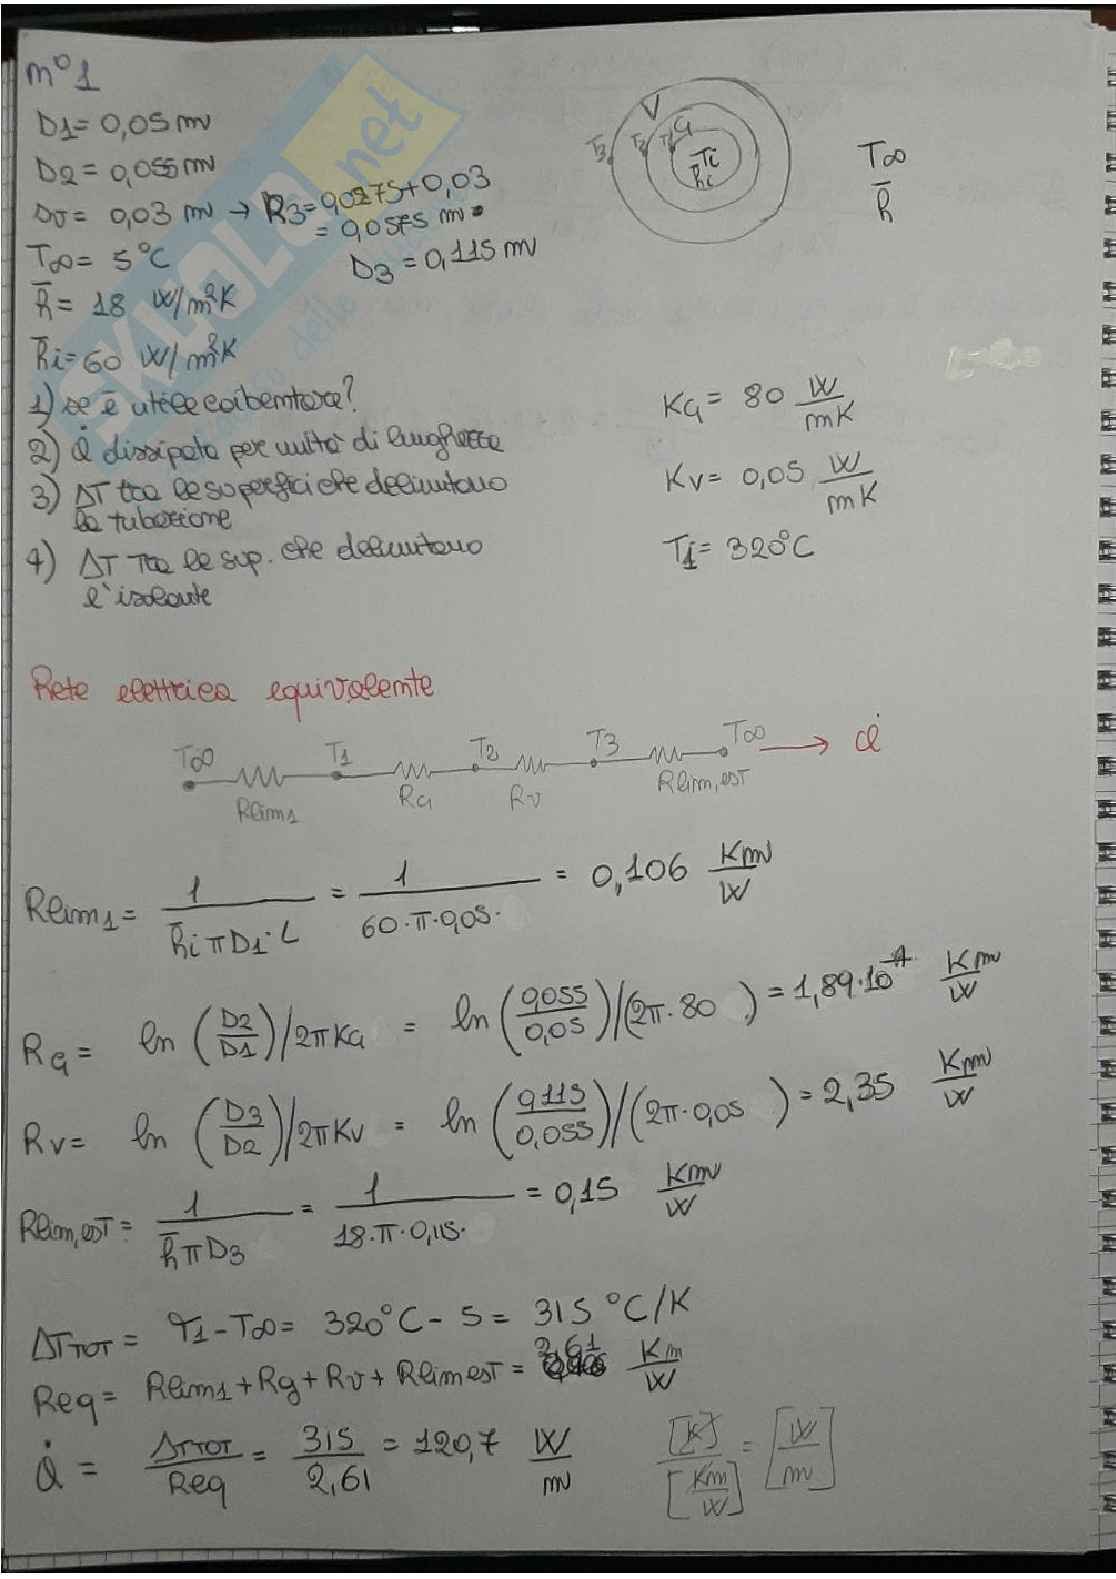 m° 1
D1= 0,05 m
D2= 0,055 m
Dv= 0,03 m → R3= 0,0275+0,03
= 0,0575 m
D3 = 0,115 m
T∞= 5°C
h̅= 18 W/m²K
h̅i= 60 W/m²K
V
G
T3
T2
T1
Ti
h̅i
T∞
h̅
1) se è utile coibentare?
2) Q̇ dissipata per unità di lunghezza
3) ΔT tra le superfici che delimitano
la tubazione
4) ΔT Tra le sup. che delimitano
l'isolante
KG = 80 W/mK
Kv= 0,05 W/mK
Ti= 320°C
Rete elettrica equivalente
T∞ T1 T2 T3 T∞ → Q̇
Rlim1 RG Rv Rlim,est
Rlim1= 1/(h̅i π D1· L) = 1/(60·π·0,05·) = 0,106 Km/W
RG= ln (D2/D1)/2πKG = ln (0,055/0,05)/(2π·80 ) = 1,89·10⁻⁴ Km/W
Rv= ln (D3/D2)/2πKv = ln (0,115/0,055)/(2π·0,05 ) = 2,35 Km/W
Rlim,est= 1/(h̅ π D3) = 1/(18·π·0,115·) = 0,15 Km/W
ΔTTOT = T1-T∞= 320°C - 5 = 315 °C/K
Req= Rlim1+Rg+Rv+Rlimest = 2,61 Km/W
Q̇ = ΔTTOT/Req = 315/2,61 = 120,7 W/m [K]/[Km/W] = [W/m]
SKUOLA.net